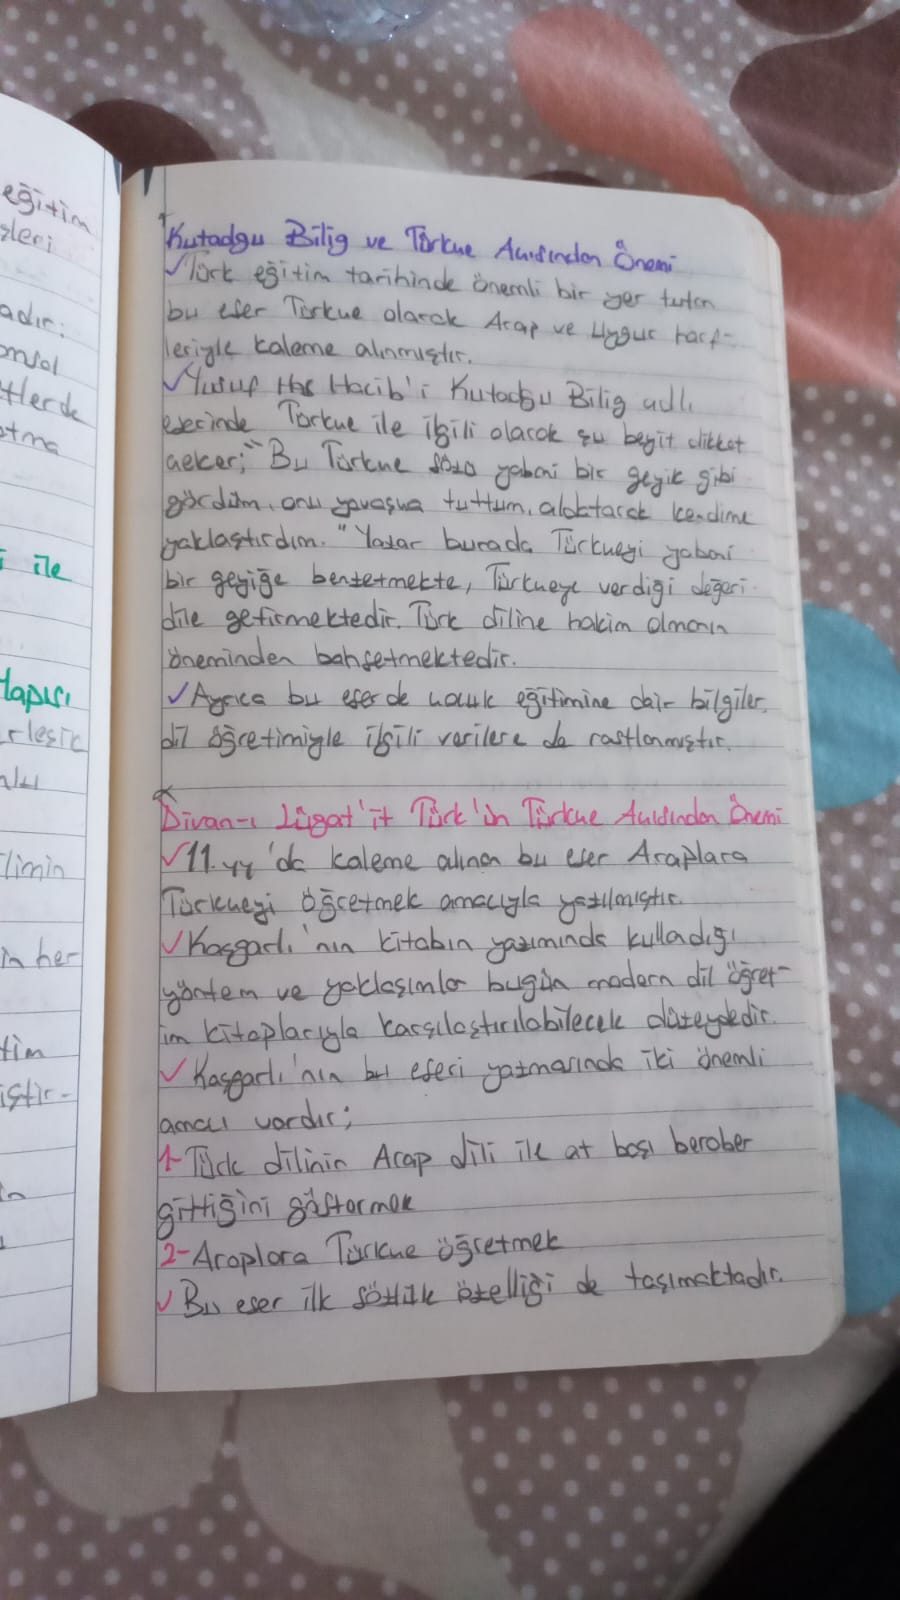 eğitim
adır:
ile
Yapısı
her-
Kutadgu Bilig ve Türkçe Açısından Önemi
✓Türk eğitim tarihinde önemli bir yer tutan
bu eser Türkçe olarak Arap ve Uygur harf-
leriyle kaleme alınmıştır.
✓Yusuf Has Hacib'i Kutadgu Bilig adlı
eserinde Türkçe ile ilgili olarak şu beyit dikkat
çeker; "Bu Türkçe sözü yabani bir geyik gibi
gördüm, onu yavaşça tuttum, alıktarak kendime
yaklaştırdım." Yazar burada Türkçeyi yabani
bir geyiğe benzetmekte, Türkçeye verdiği değeri
dile getirmektedir. Türk diline hakim olmanın
öneminden bahsetmektedir.
✓Ayrıca bu eserde çocuk eğitimine dair bilgiler,
dil öğretimiyle ilgili verilere de rastlanmıştır.
Divan-ı Lügat'it Türk'ün Türkçe Açısından Önemi
✓11.yy'da kaleme alınan bu eser Araplara
Türkçeyi öğretmek amacıyla yazılmıştır.
✓Kaşgarlı'nın kitabın yazımında kulladığı
yöntem ve yaklaşımlar bugün modern dil öğret-
im kitaplarıyla karşılaştırılabilecek düzeydedir.
✓Kaşgarlı'nın bu eseri yazmasında iki önemli
amacı vardır;
1-Türk dilinin Arap dili ile at başı beraber
gittiğini göstermek
2-Araplara Türkçe öğretmek
✓Bu eser ilk sözlük özelliği de taşımaktadır.